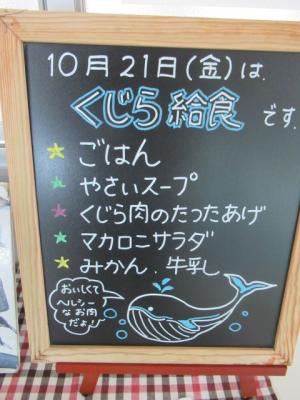 10月21日(金)は、
くじら給食です。
★ごはん
★やさいスープ
★くじら肉のたったあげ
★マカロニサラダ
★みかん.牛乳
おいしくて
ヘルシー
なお肉
だよ!